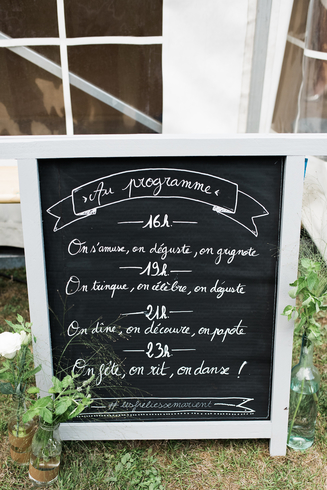 "Au programme"
16h
On s'amuse, on déguste, on grignote
19h
On trinque, on célèbre, on déguste
21h
On dîne, on découvre, on papote
23h
On fête, on rit, on danse !